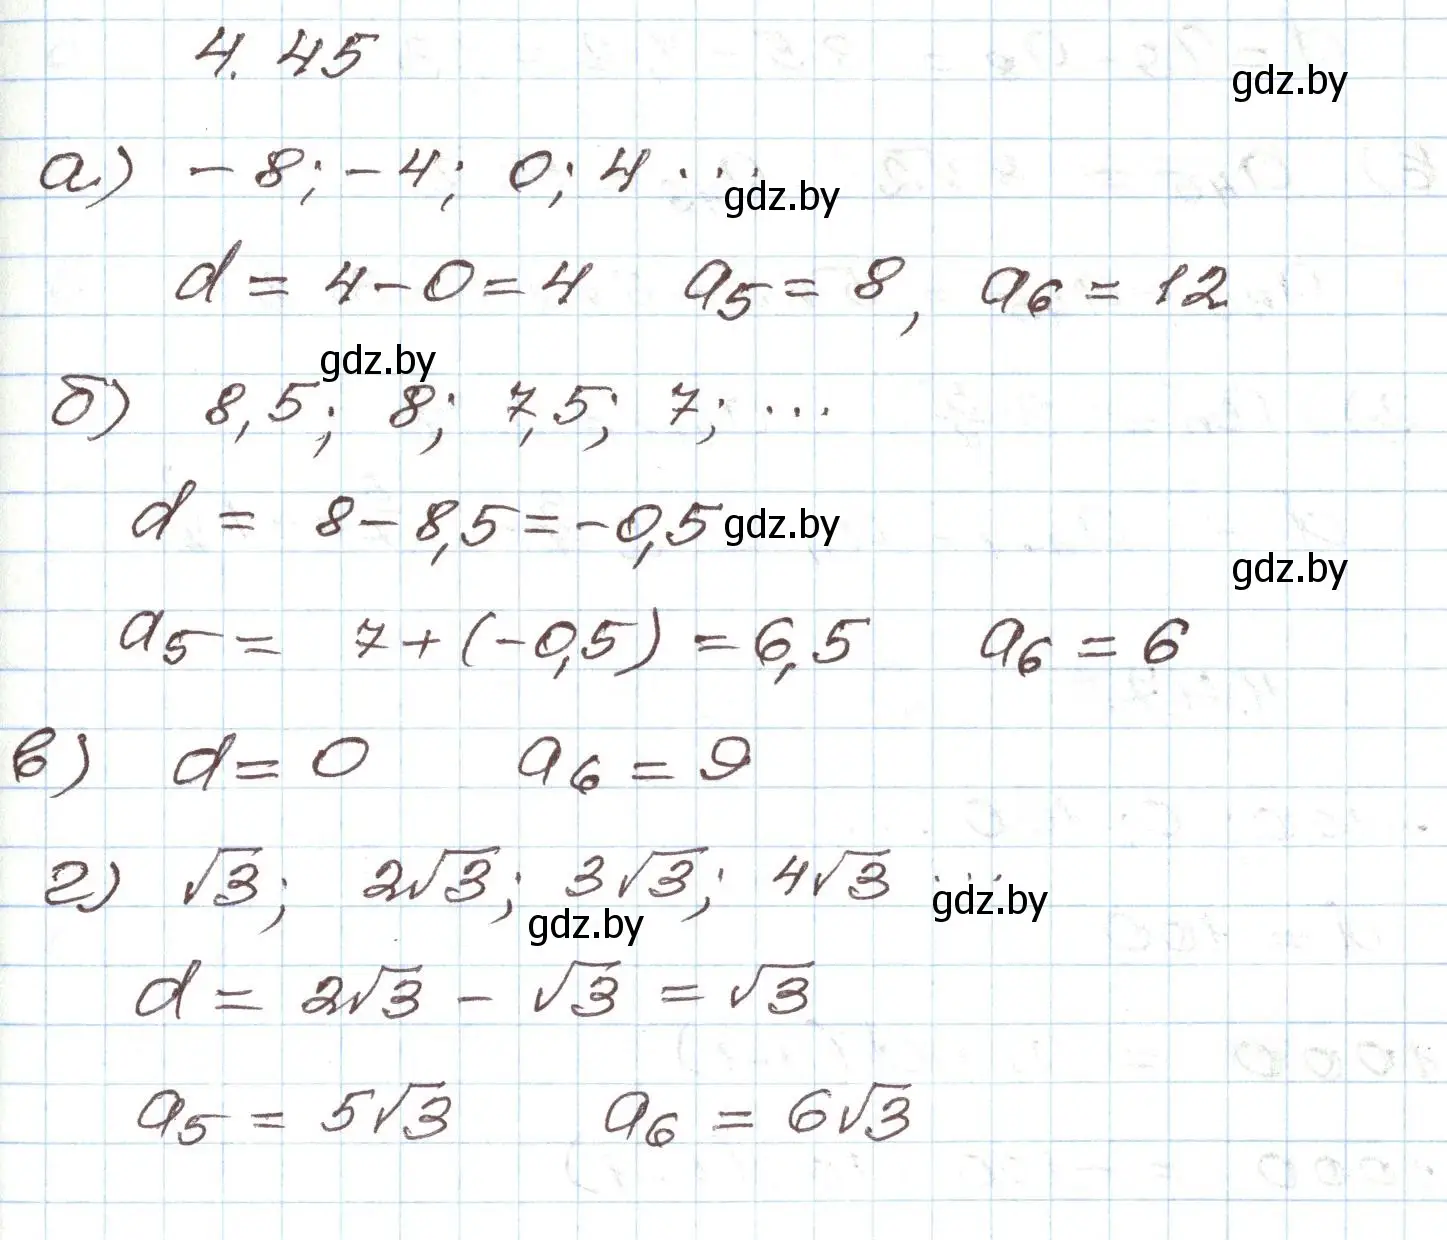 4.45
gdz.by
а) -8; -4; 0; 4 ...
gdz.by
d = 4-0=4 a₅ = 8, a₆ = 12
gdz.by
б) 8,5; 8; 7,5; 7; ...
d = 8-8,5=-0,5
gdz.by
gdz.by
a₅ = 7+(-0,5) = 6,5 a₆ = 6
в) d = 0 a₆ = 9
г) √3; 2√3; 3√3; 4√3 ...
gdz.by
gdz.by
d = 2√3 - √3 = √3
a₅ = 5√3 a₆ = 6√3